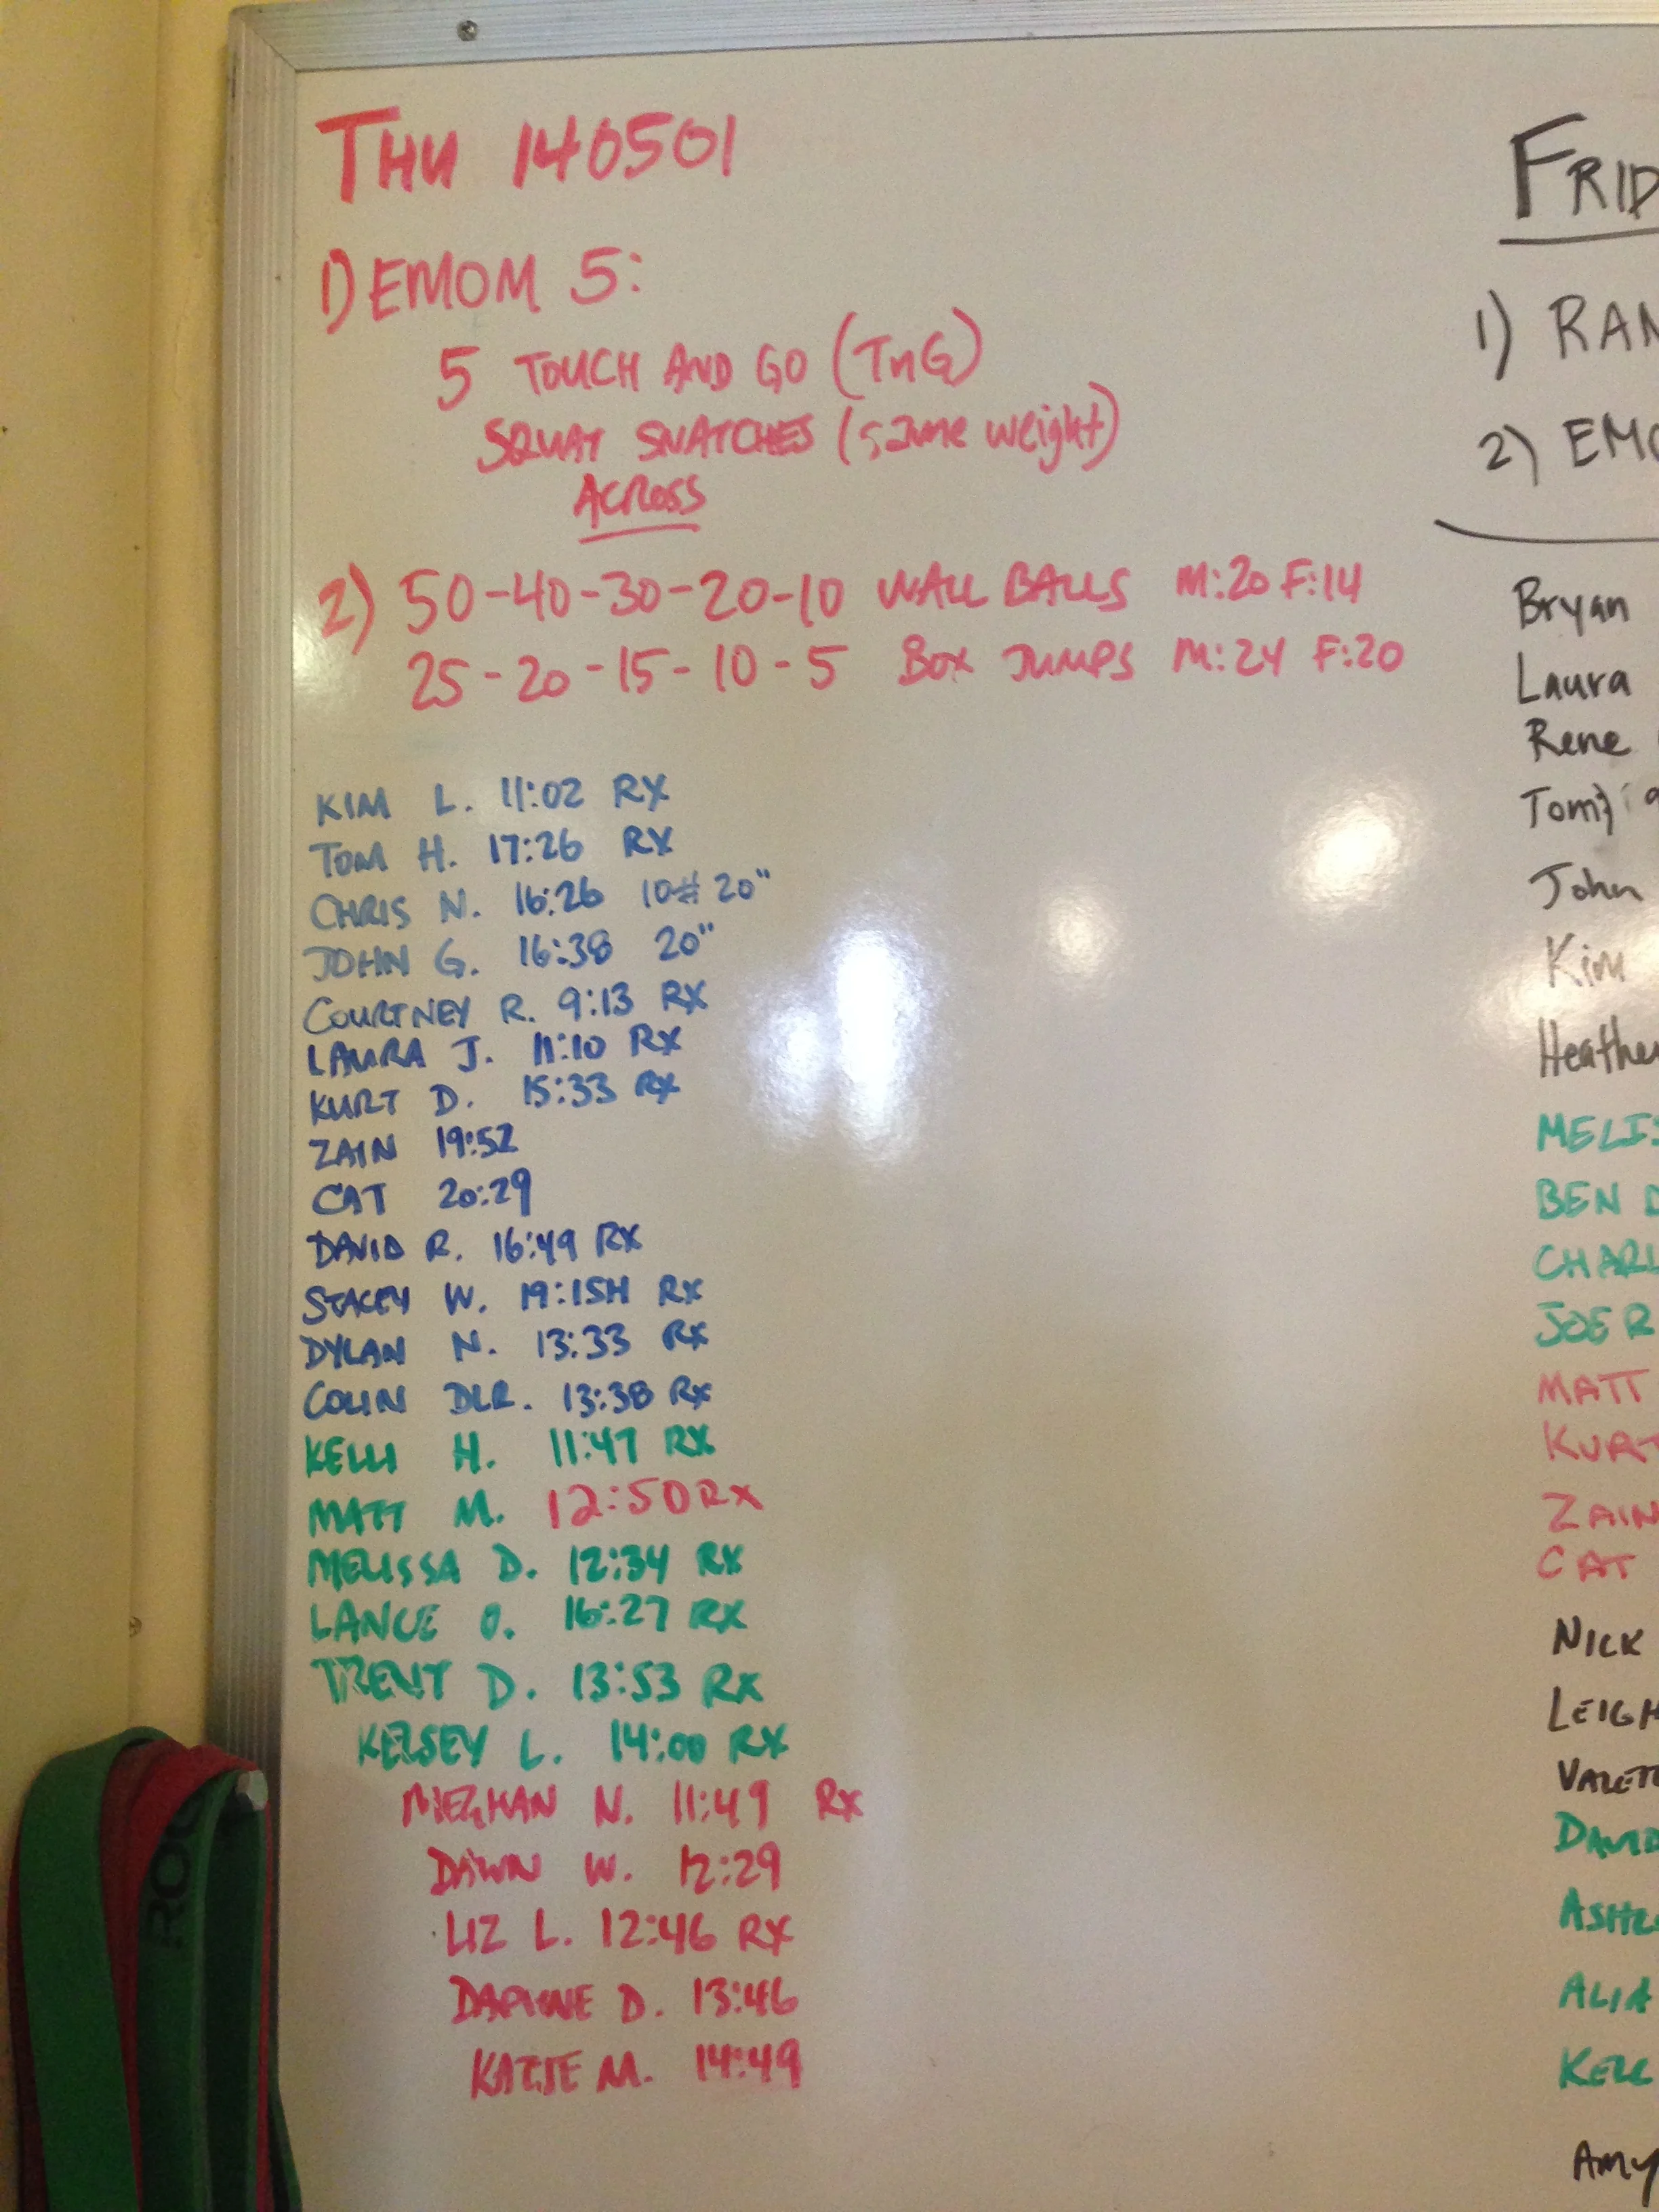 THU 140501
1) EMOM 5:
5 TOUCH AND GO (TnG)
SQUAT SNATCHES (same weight)
ACROSS
2) 50-40-30-20-10 WALL BALLS M:20 F:14
25-20-15-10-5 BOX JUMPS M:24 F:20
KIM L. 11:02 RX
TOM H. 17:26 RX
CHRIS N. 16:26 10# 20"
JOHN G. 16:38 20"
COURTNEY R. 9:13 RX
LAURA J. 11:10 RX
KURT D. 15:33 RX
ZAIN 19:52
CAT 20:29
DAVID R. 16:49 RX
STACEY W. 19:15H RX
DYLAN N. 13:33 RX
COLIN DLR. 13:38 RX
KELLI H. 11:47 RX
MATT M. 12:50 RX
MELISSA D. 12:34 RX
LANCE O. 16:27 RX
TRENT D. 13:53 RX
KELSEY L. 14:00 RX
MEGHAN N. 11:49 RX
DAWN W. 12:29
LIZ L. 12:46 RX
DAPHNE D. 13:46
KATIE M. 14:49
FRID
1) RAN
2) EMO
Bryan
Laura
Rene
John
Kim
Heathe
MELIS
BEN D
CHARL
JOE R
MATT
KURT
ZAIN
CAT
NICK
LEIGH
DAVID
ALIA
KELL
Amy
ROG